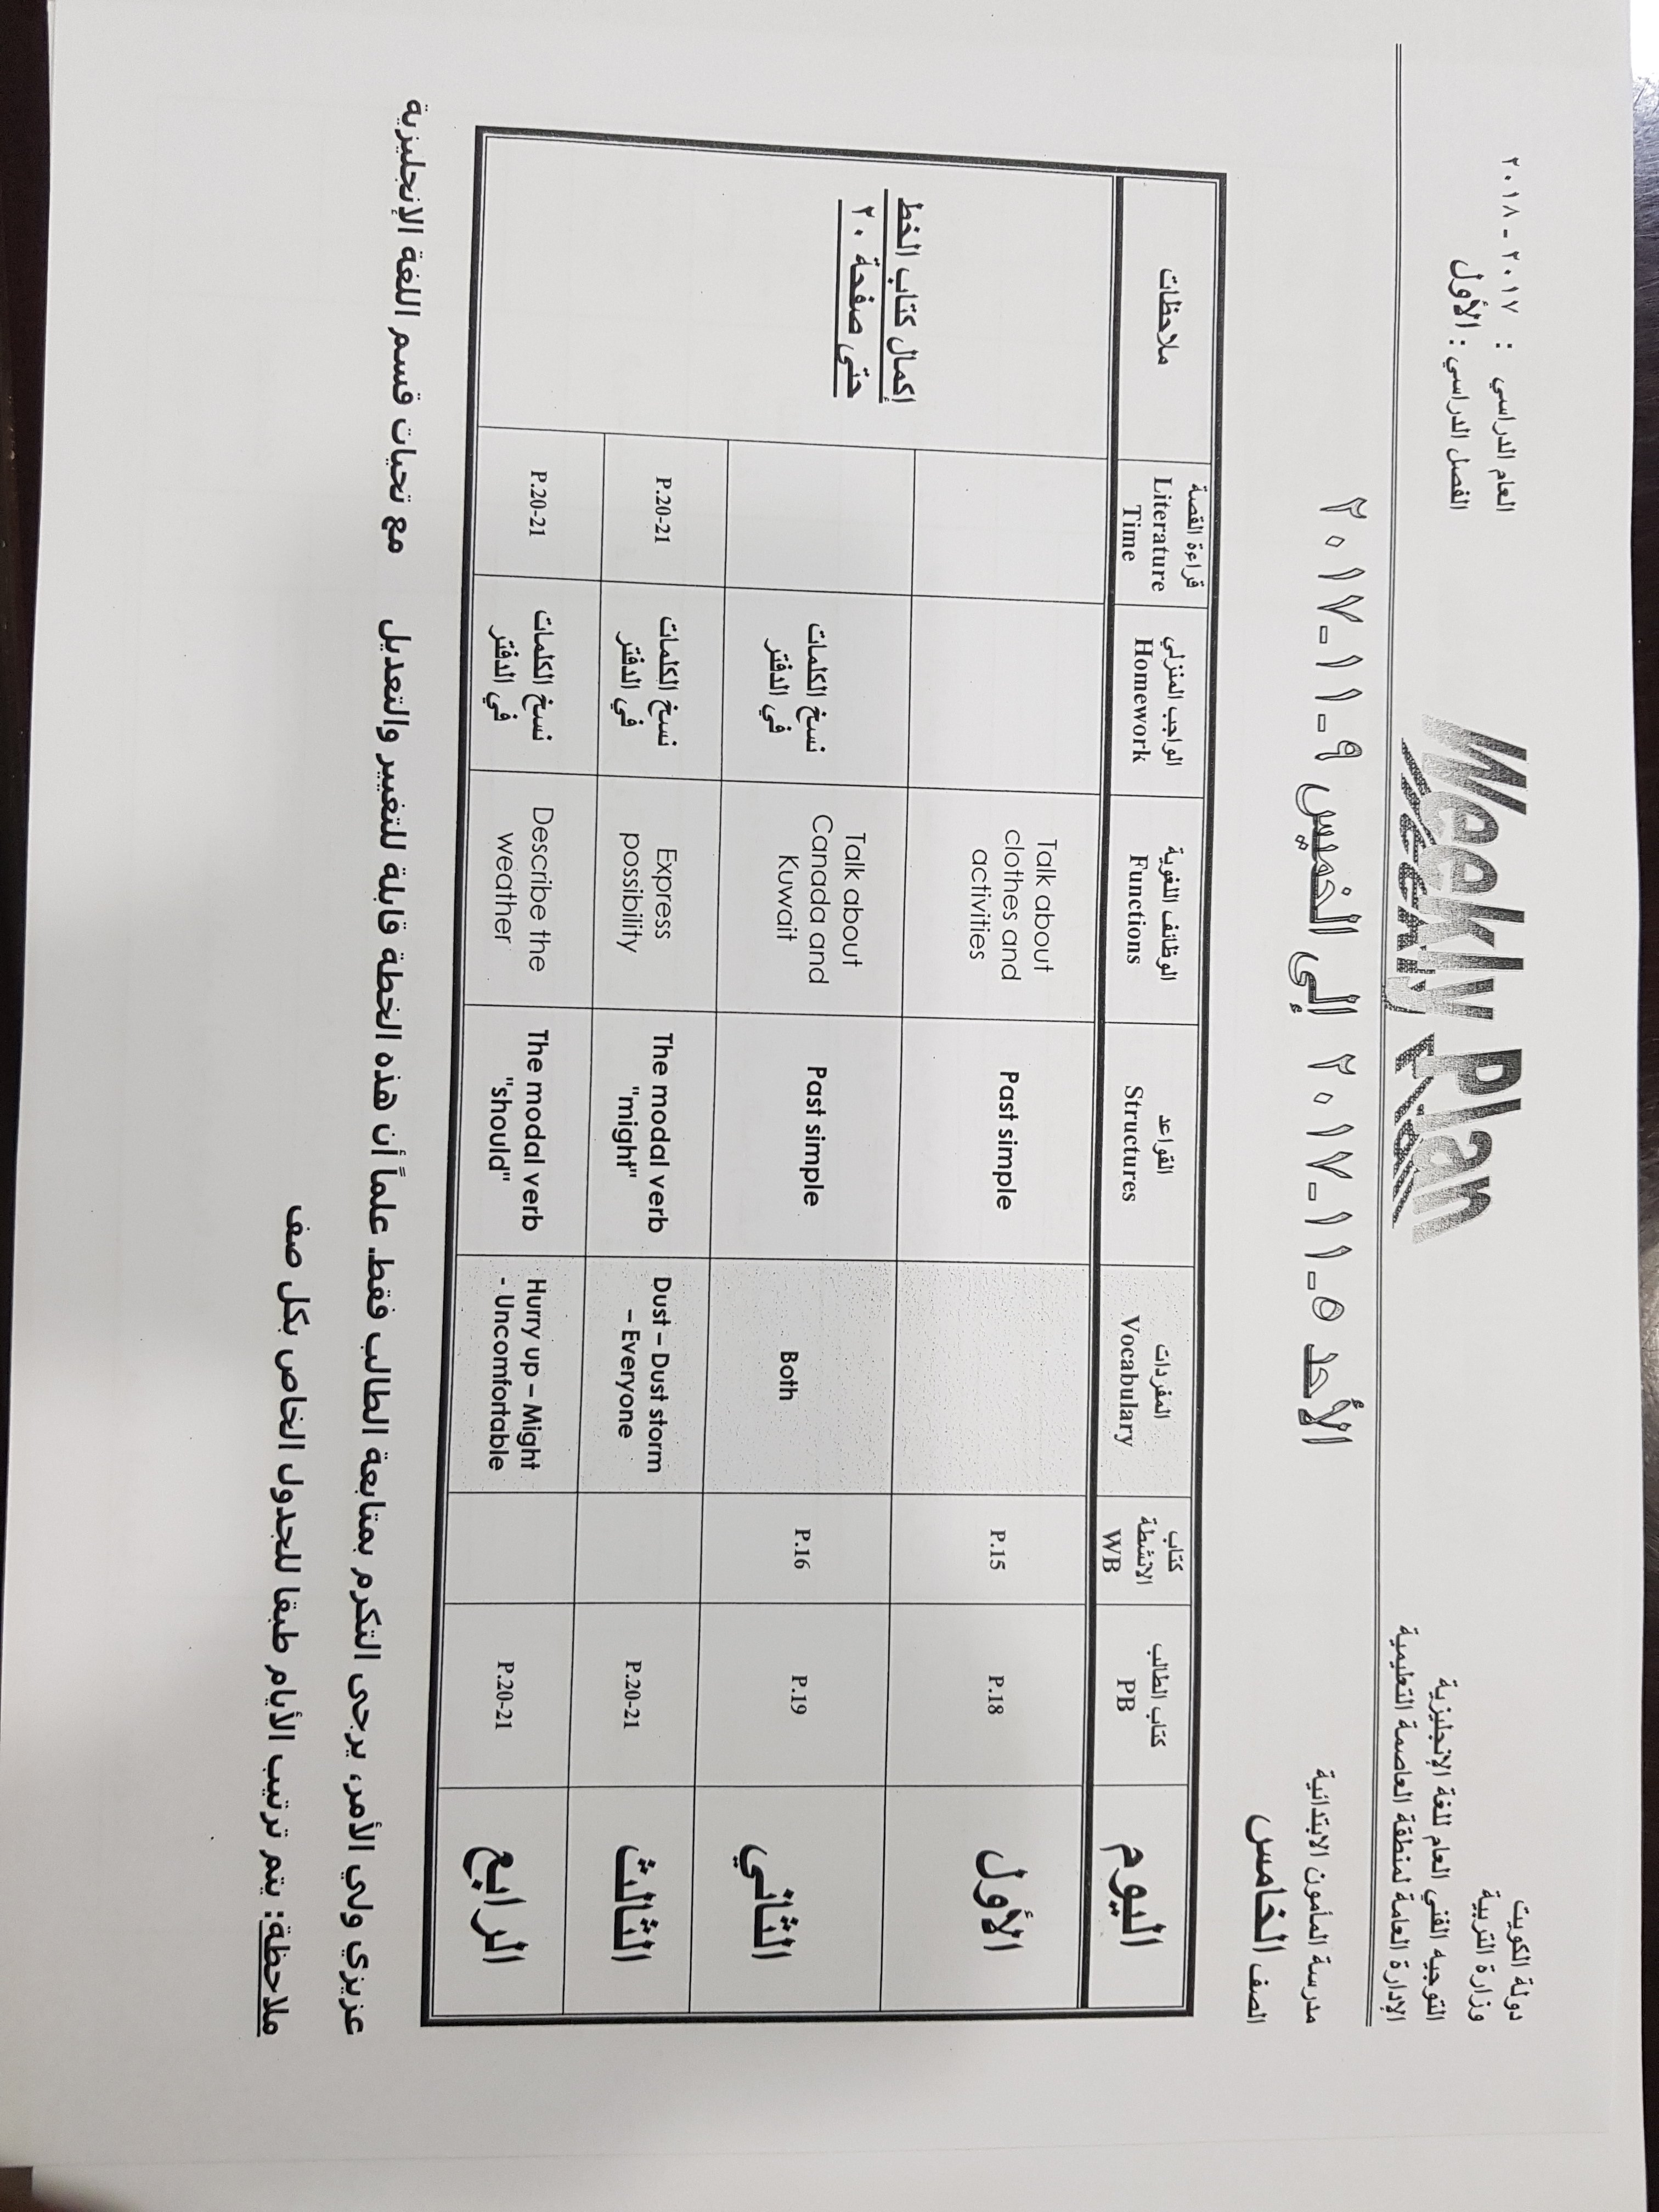 دولة الكويت
وزارة التربية
التوجيه الفني العام للغة الإنجليزية
الإدارة العامة لمنطقة العاصمة التعليمية
Weekly Plan
العام الدراسي : ٢٠١٧ - ٢٠١٨
الفصل الدراسي : الأول
مدرسة المأمون الابتدائية
الصف الخامس
الأحد ٥-١١-٢٠١٧ إلى الخميس ٩-١١-٢٠١٧
اليوم
كتاب الطالب
PB
كتاب
الانشطة
WB
المفردات
Vocabulary
القواعد
Structures
الوظائف اللغوية
Functions
الواجب المنزلي
Homework
قراءة القصة
Literature
Time
ملاحظات
الأول
P.18
P.15
Past simple
Talk about
clothes and
activities
الثاني
P.19
P.16
Both
Past simple
Talk about
Canada and
Kuwait
نسخ الكلمات
في الدفتر
الثالث
P.20-21
Dust – Dust storm
– Everyone
The modal verb
"might"
Express
possibility
نسخ الكلمات
في الدفتر
P.20-21
الرابع
P.20-21
Hurry up – Might
- Uncomfortable
The modal verb
"should"
Describe the
weather
نسخ الكلمات
في الدفتر
P.20-21
إكمال كتاب الخط
حتى صفحة ٢٠
عزيزي ولي الأمر، يرجى التكرم بمتابعة الطالب فقط علماً أن هذه الخطة قابلة للتغيير والتعديل مع تحيات قسم اللغة الإنجليزية
ملاحظة: يتم ترتيب الأيام طبقا للجدول الخاص بكل صف